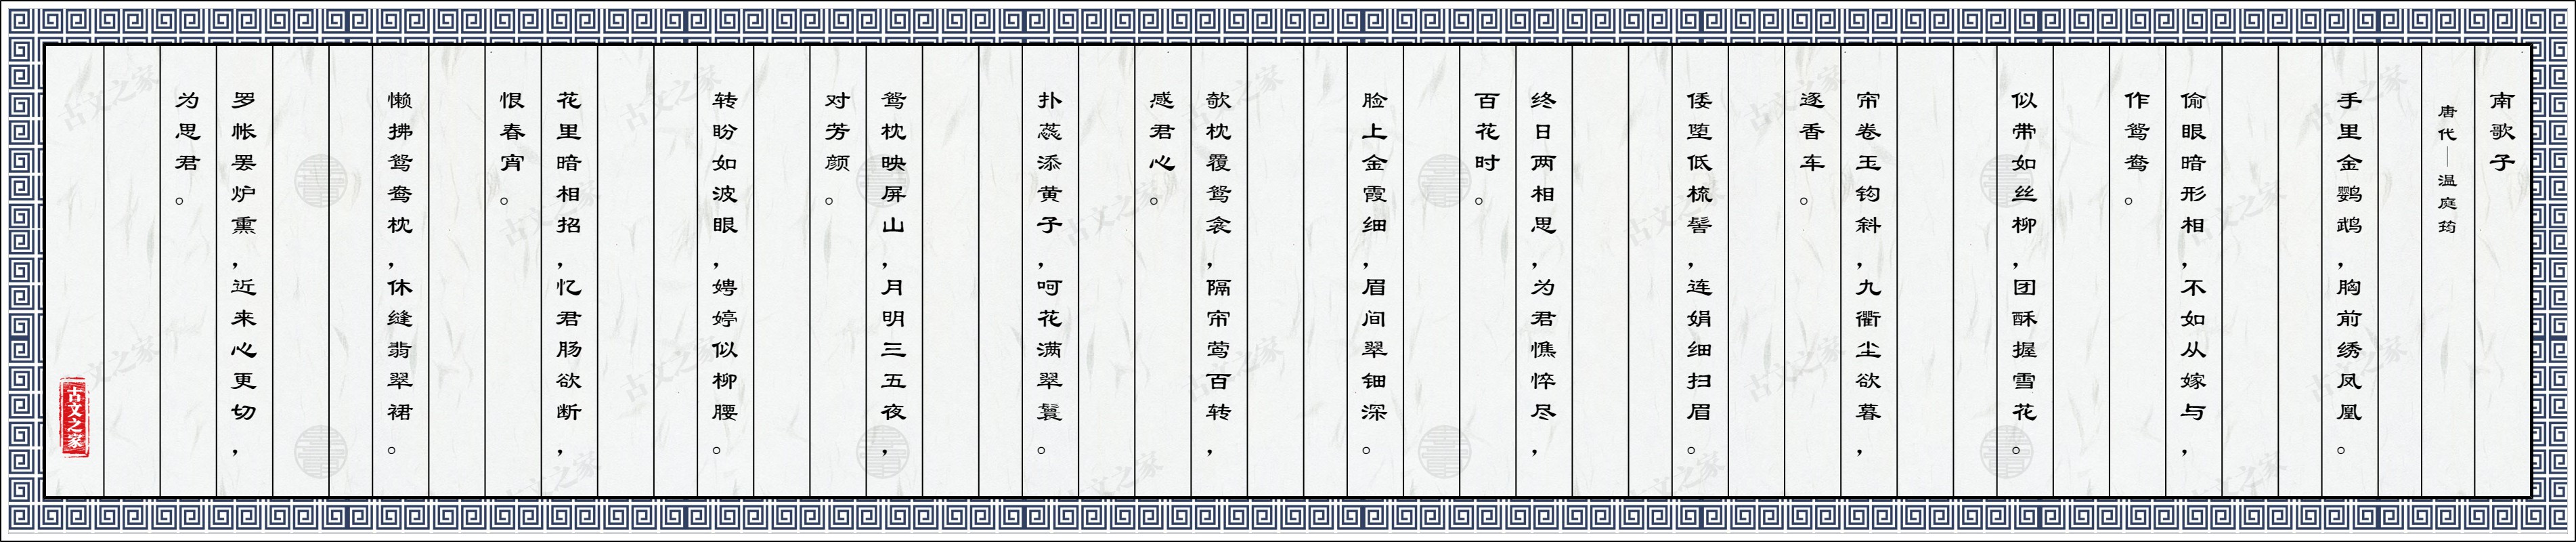 南歌子
唐代—温庭筠
手里金鹦鹉，胸前绣凤凰。
偷眼暗形相，不如从嫁与，
作鸳鸯。
似带如丝柳，团酥握雪花。
帘卷玉钩斜，九衢尘欲暮，
逐香车。
倭堕低梳髻，连娟细扫眉。
终日两相思，为君憔悴尽，
百花时。
脸上金霞细，眉间翠钿深。
欹枕覆鸳衾，隔帘莺百转，
感君心。
扑蕊添黄子，呵花满翠鬟。
鸳枕映屏山，月明三五夜，
对芳颜。
转盼如波眼，娉婷似柳腰。
花里暗相招，忆君肠欲断，
恨春宵。
懒拂鸳鸯枕，休缝翡翠裙。
罗帐罢炉熏，近来心更切，
为思君。
古文之家